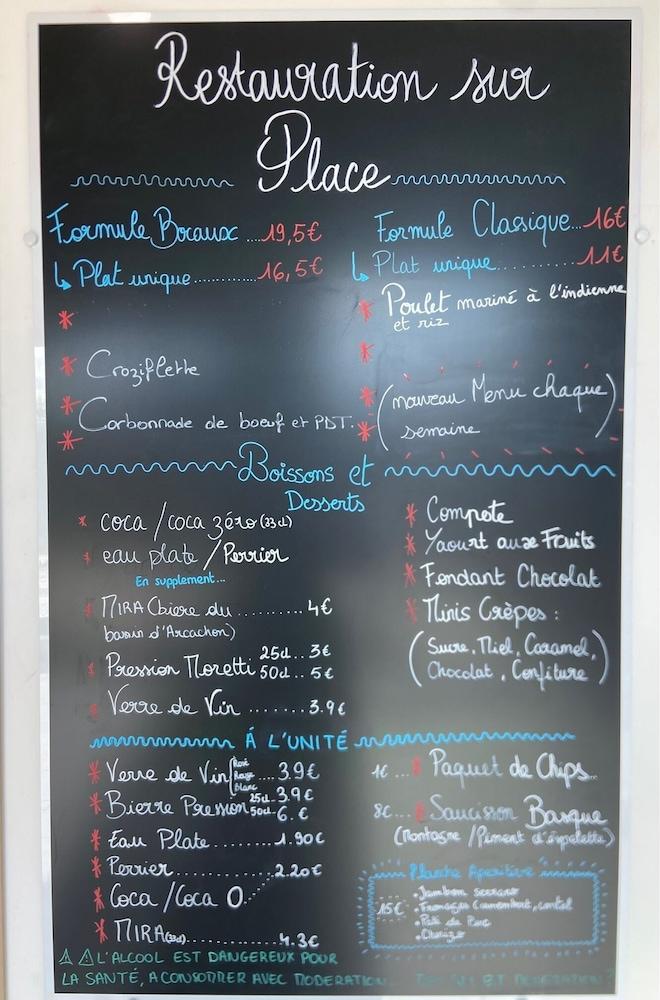 Restauration sur
Place
Formule Bocaux ....19,5€
↳ Plat unique...........16,5€
*
* Croziflette
* Carbonnade de boeuf et PDT.
*
Formule Classique...16€
↳ Plat unique..........11€
* Poulet mariné à l'indienne
et riz
*
* (nouveau Menu chaque
* semaine)
Boissons et
Desserts
* coca /coca zéro (33cl)
* eau plate /Perrier
En supplement...
* MIRA (biere du ..........4€
bassin d'Arcachon)
* Pression Moretti 25cl... 3€
50cl... 5€
* Verre de Vin .......3.9€
* Compote
* Yaourt aux Fruits
* Fondant Chocolat
* Minis Crêpes :
(Sucre, Miel, Caramel,
Chocolat, Confiture)
À L'UNITÉ
* Verre de Vin Rosé Rouge Blanc ....3.9€
* Bierre Pression 25cl..3.9€
50cl..6.€
* Eau Plate.........1.90€
* Perrier............2.20€
* Coca /Coca 0......
* MIRA(33cl)................4.3€
1€ ...* Paquet de Chips
8€ ...* Saucisson Basque
(Montagne /Piment d'espelette)
Planche Aperitive
15€
. Jambon serrano
. Fromages (camembert, cantal
. Paté de Porc
. Chorizo
⚠ ⚠ L'ALCOOL EST DANGEREUX POUR
LA SANTÉ, A CONSOMMER AVEC MODERATION...